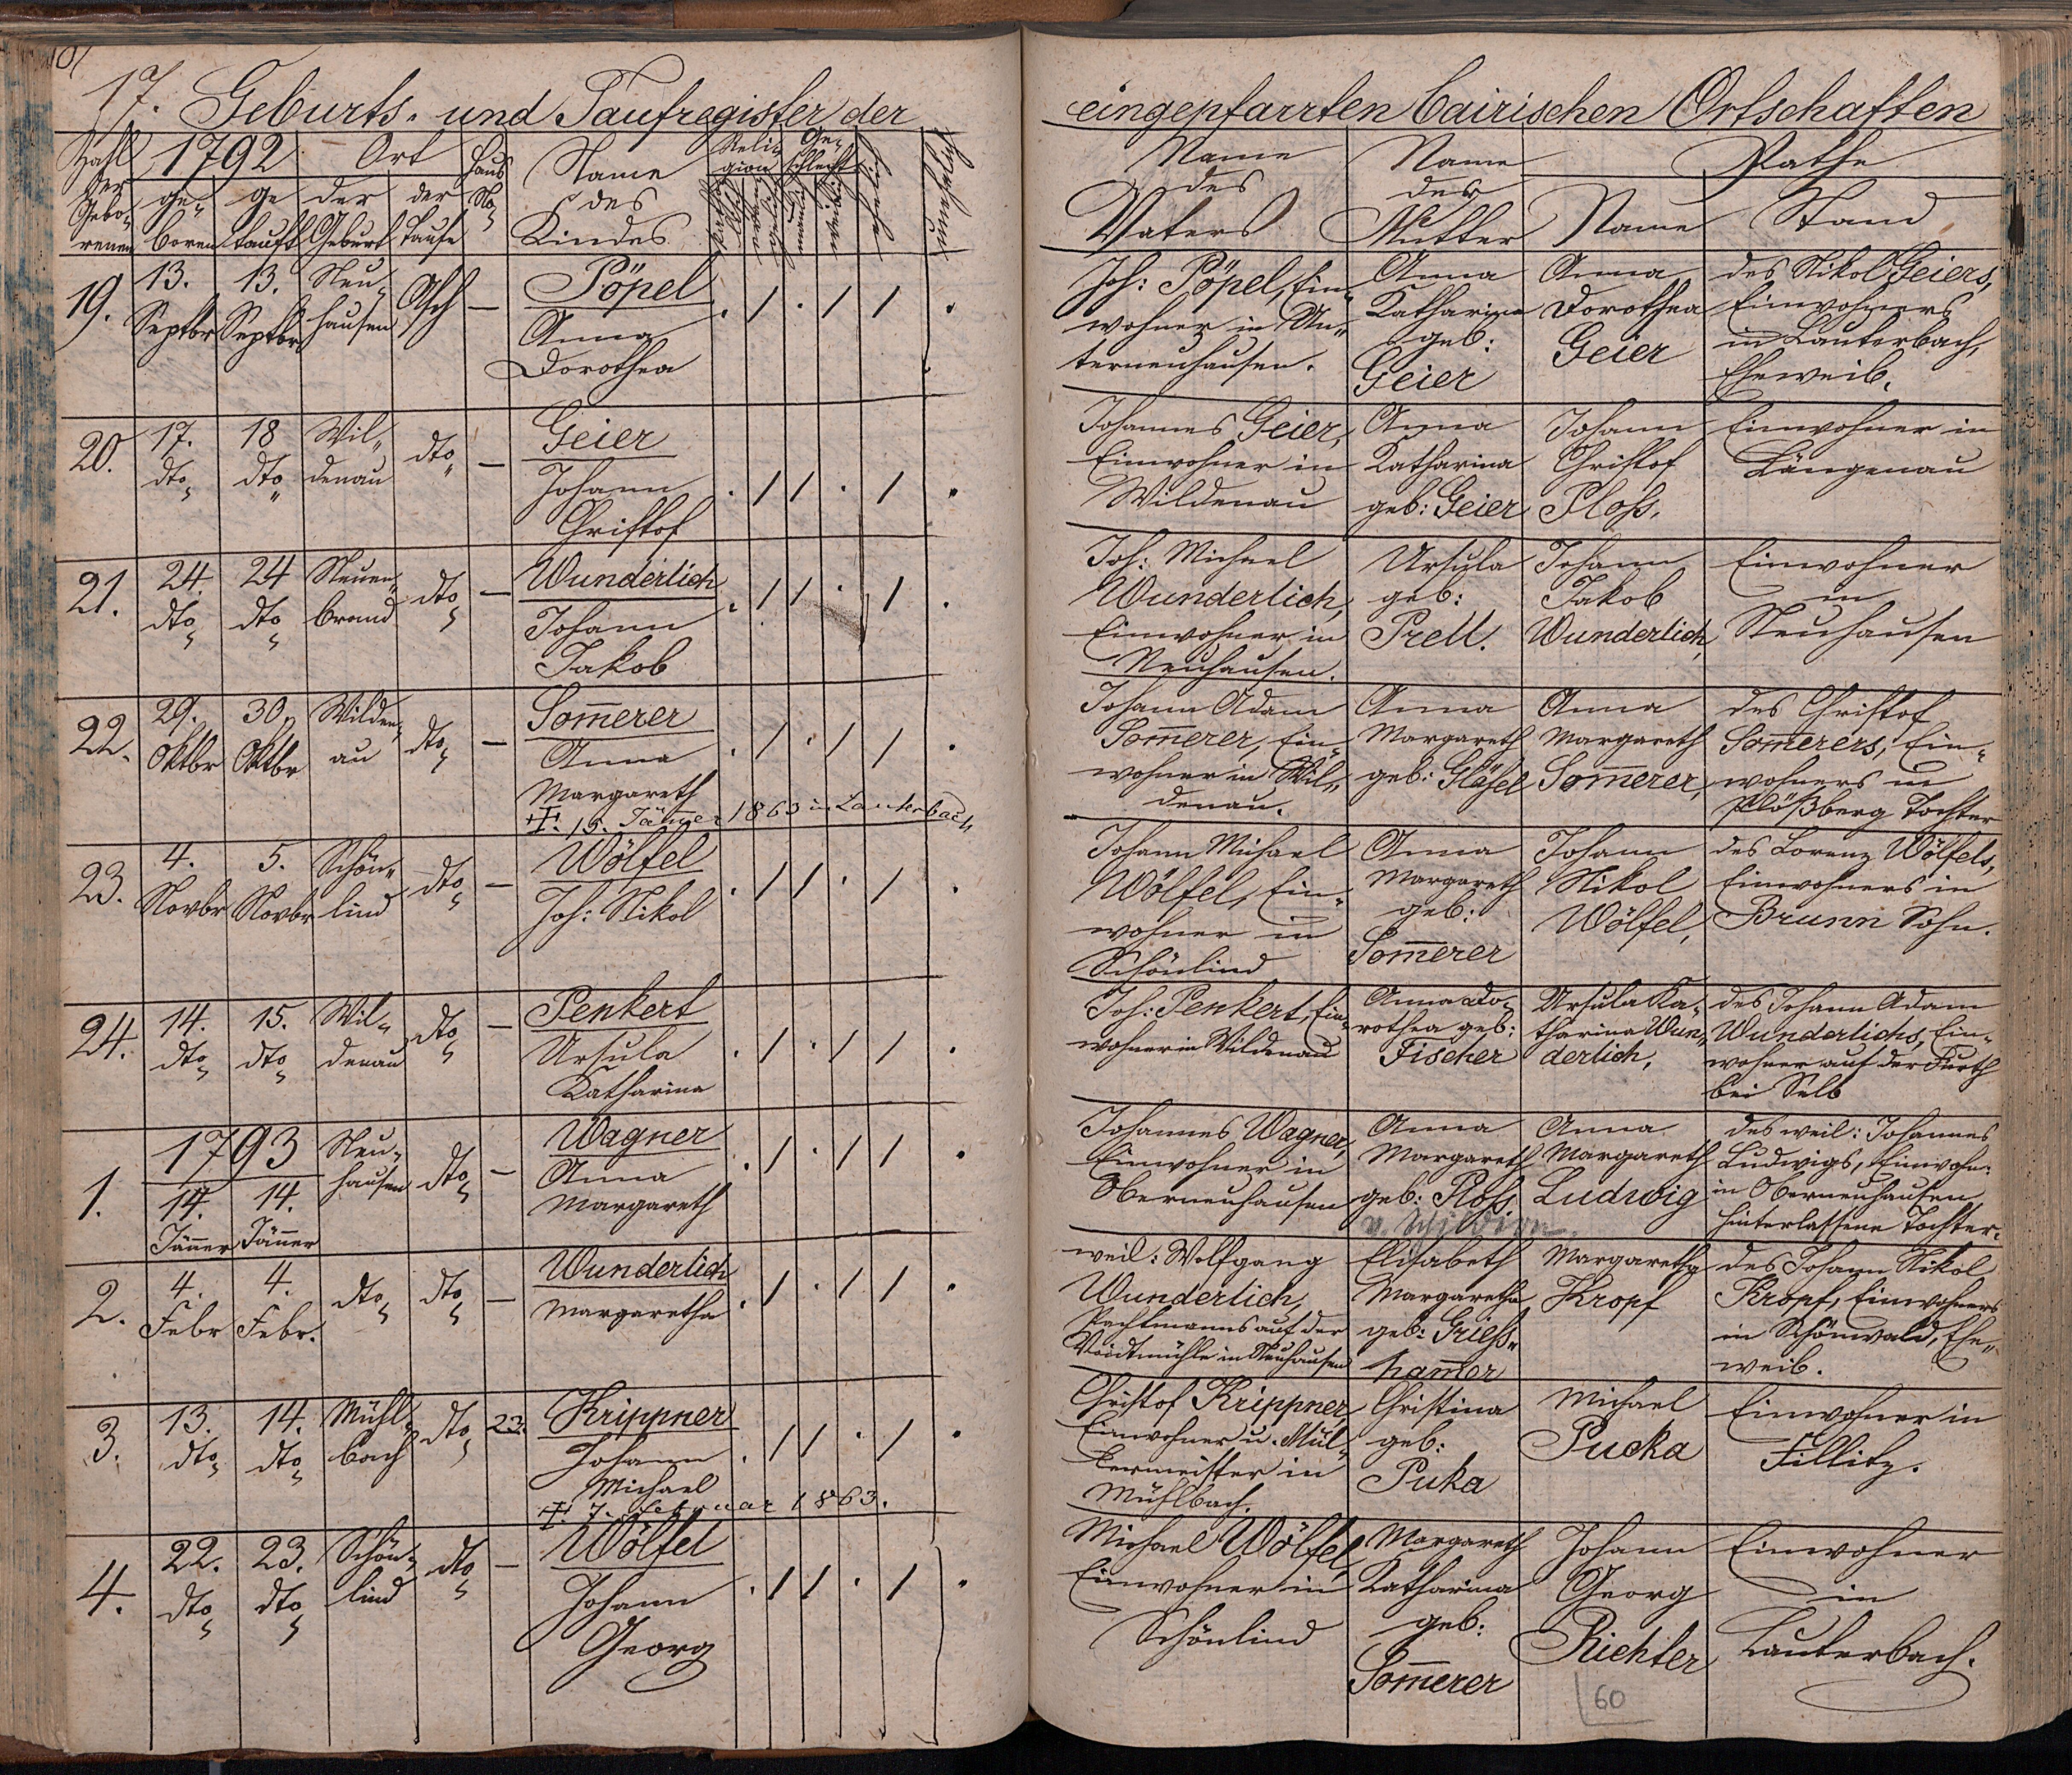 17. Geburts- und Taufregister der
eingepfarrten bairischen Ortschaften
Zahl der Gebo-renen
1792
ge-boren
ge tauft
Ort
der Geburt
der Taufe
Haus No
Name des Kindes
Reli-gion
Ge-schlecht
ehelich
unehelich
Name des Vaters
Name der Mutter
Pathe
Name
Stand
19. 13. Septbr 13. Septbr Neu-hausen Asch —
Pöpel
Anna
Dorothea
. / . / / .
Joh: Pöpel, Ein-
wohner in Un-
terneuhausen.
Anna
Katharina
geb:
Geier
Anna
Dorothea
Geier
des Nikol Geiers,
Einwohners
in Lauterbach,
Eheweib.
20. 17. dto 18 dto Wil-denau dto —
Geier
Johann
Christof
. / / . / .
Johannes Geier,
Einwohner in
Wildenau
Anna
Katharina
geb: Geier
Johann
Christof
Ploß,
Einwohner in
Längenau
21. 24. dto 24 dto Neuen-brand dto —
Wunderlich
Johann
Jakob
. / / . / .
Joh: Michael
Wunderlich,
Einwohner in
Neuhausen.
Ursula
geb:
Prell.
Johann
Jakob
Wunderlich,
Einwohner
in
Neuhausen
22. 29. Oktbr 30. Oktbr Wilden-au dto —
Som̄erer
Anna
Margareth
✝. 15. Jänner 1863 in Lauterbach
. / . / / .
Johann Adam
Som̄erer, Ein-
wohner in Wil-
denau.
Anna
Margareth
geb: Gläsel
Anna
Margareth
Som̄erer,
des Christof
Som̄erers, Ein-
wohners in
Plößberg Tochter
23. 4. Novbr 5. Novbr Schön-lind dto —
Wölfel
Joh: Nikol
. / / . / .
Johann Michael
Wölfel, Ein-
wohner in
Schönlind
Anna
Margareth
geb:
Som̄erer
Johann
Nikol
Wölfel,
des Lorenz Wölfels,
Einwohners in
Brunn Sohn.
24. 14. dto 15. dto Wil-denau dto —
Penkert
Ursula
Katharina
. / . / / .
Joh: Penkert, Ein-
wohner in Wildenau
Anna Do-
rothea geb:
Fischer
Ursula Ka-
tharina Wun-
derlich,
des Johann Adam
Wunderlichs, Ein-
wohner auf der Furth
bei Selb
1793
1. 14. Jänner 14. Jänner Neu-hausen dto —
Wagner
Anna
Margareth
. / . / / .
Johannes Wagner,
Einwohner in
Oberneuhausen
Anna
Margareth
geb: Ploß
v. Schildern
Anna
Margareth
Ludwig
des weil: Johannes
Ludwigs, Einwohn:
in Oberneuhausen
hinterlassene Tochter.
2. 4. Febr 4. Febr. dto dto —
Wunderlich
Margaretha
. / . / / .
weil: Wolfgang
Wunderlich,
Pachtmanns auf der
Voidtmühle in Neuhausen
Elisabeth
Margaretha
geb: Grieß-
ham̄er
Margaretha
Kropf
des Johann Nikol
Kropf, Einwohners
in Schönwald, Ehe-
weib.
3. 13. dto 14. dto Mühl-bach dto 23.
Krippner
Johann
Michael
✝. 7. Februar 1863.
. / / . / .
Christof Krippner,
Einwohner u. Mül-
lermeister in
Mühlbach.
Christina
geb:
Puka
Michael
Pucka
Einwohner in
Fillitz.
4. 22. dto 23. dto Schön-lind dto —
Wölfel
Johann
Georg
. / / . / .
Michael Wölfel,
Einwohner in
Schönlind
Margareth
Katharina
geb:
Som̄erer
Johann
Georg
Richter
Einwohner
in
Lauterbach.
60